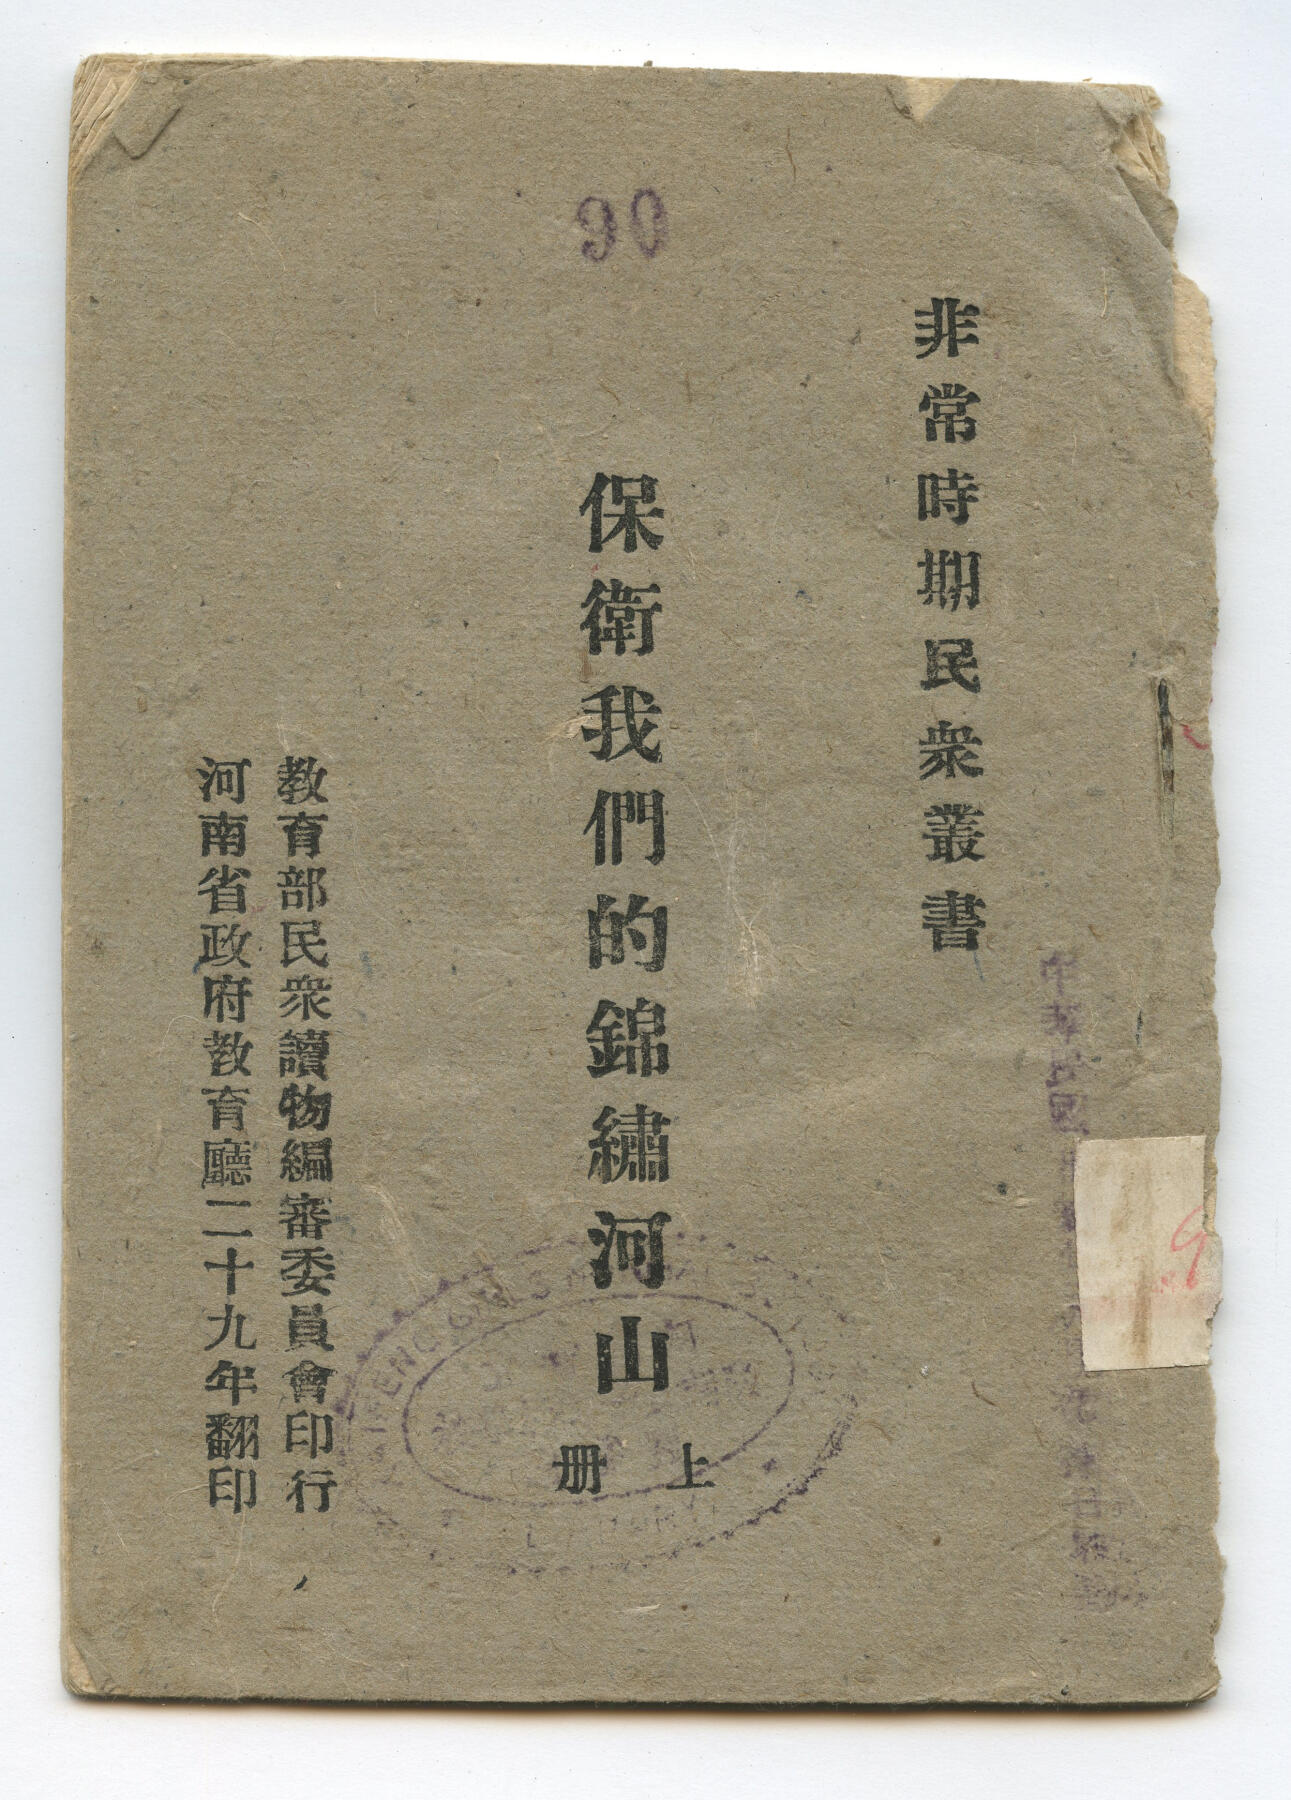 90
非常時期民衆叢書
保衛我們的錦繡河山
上册
教育部民衆讀物編審委員會印行
河南省政府教育廳二十九年翻印
中華民國
9